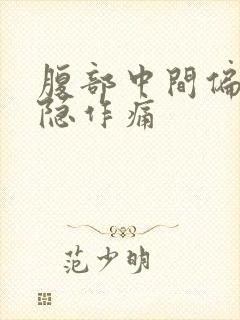 腹部中間偏
隐作痛
范少明